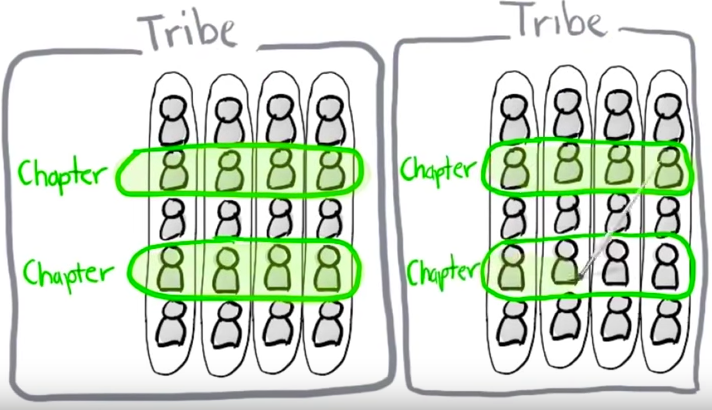 Tribe
Chapter
Chapter
Tribe
Chapter
Chapter